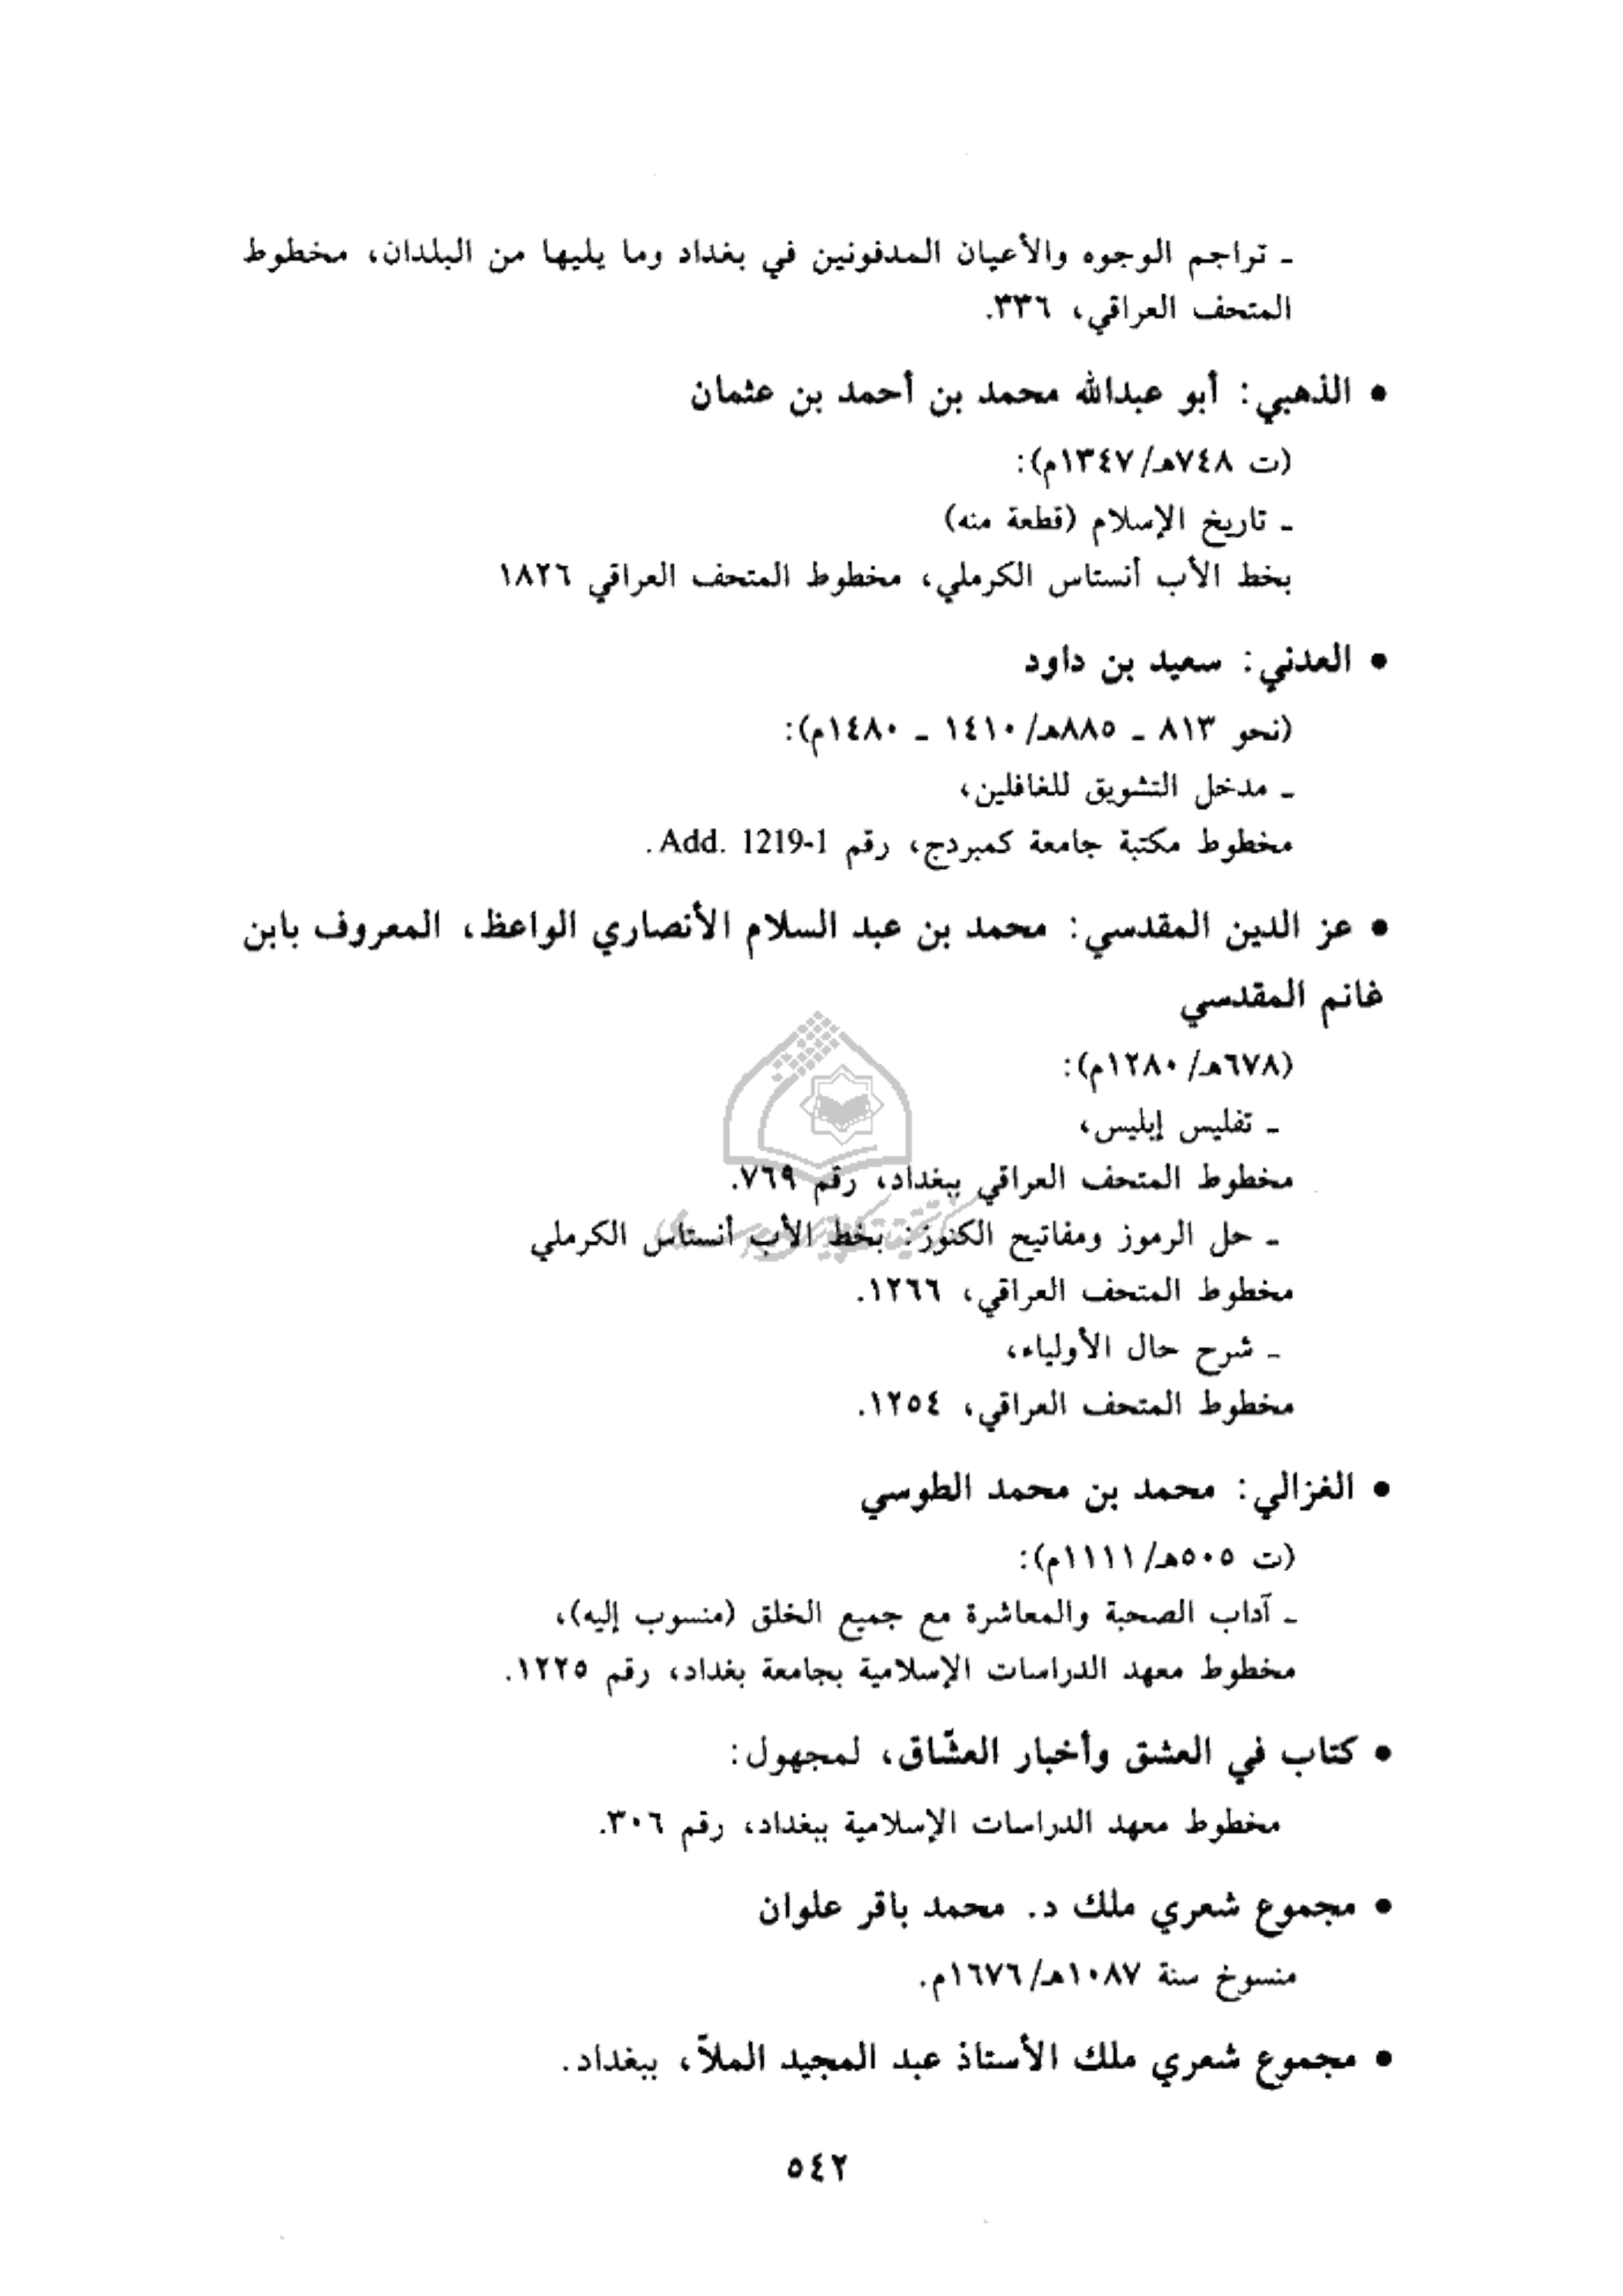 ـ تراجم الوجوه والأعيان المدفونين في بغداد وما يليها من البلدان، مخطوط
المتحف العراقي، ٣٣٦.
• الذهبي: أبو عبدالله محمد بن أحمد بن عثمان
(ت ٧٤٨هـ/١٣٤٧م):
ـ تاريخ الإسلام (قطعة منه)
بخط الأب أنستاس الكرملي، مخطوط المتحف العراقي ١٨٢٦
• العدني: سعيد بن داود
(نحو ٨١٣ ـ ٨٨٥هـ/١٤١٠ ـ ١٤٨٠م):
ـ مدخل التشويق للغافلين،
مخطوط مكتبة جامعة كمبردج، رقم Add. 1219-1.
• عز الدين المقدسي: محمد بن عبد السلام الأنصاري الواعظ، المعروف بابن
غانم المقدسي
(٦٧٨هـ/١٢٨٠م):
ـ تفليس إبليس،
مخطوط المتحف العراقي ببغداد، رقم ٧٦٩.
ـ حل الرموز ومفاتيح الكنوز: بخط الأب أنستاس الكرملي
مخطوط المتحف العراقي، ١٢٦٦.
ـ شرح حال الأولياء،
مخطوط المتحف العراقي، ١٢٥٤.
• الغزالي: محمد بن محمد الطوسي
(ت ٥٠٥هـ/١١١١م):
ـ آداب الصحبة والمعاشرة مع جميع الخلق (منسوب إليه)،
مخطوط معهد الدراسات الإسلامية بجامعة بغداد، رقم ١٢٢٥.
• كتاب في العشق وأخبار العشّاق، لمجهول:
مخطوط معهد الدراسات الإسلامية ببغداد، رقم ٣٠٦.
• مجموع شعري ملك د. محمد باقر علوان
منسوخ سنة ١٠٨٧هـ/١٦٧٦م.
• مجموع شعري ملك الأستاذ عبد المجيد الملاّ، ببغداد.
٥٤٢